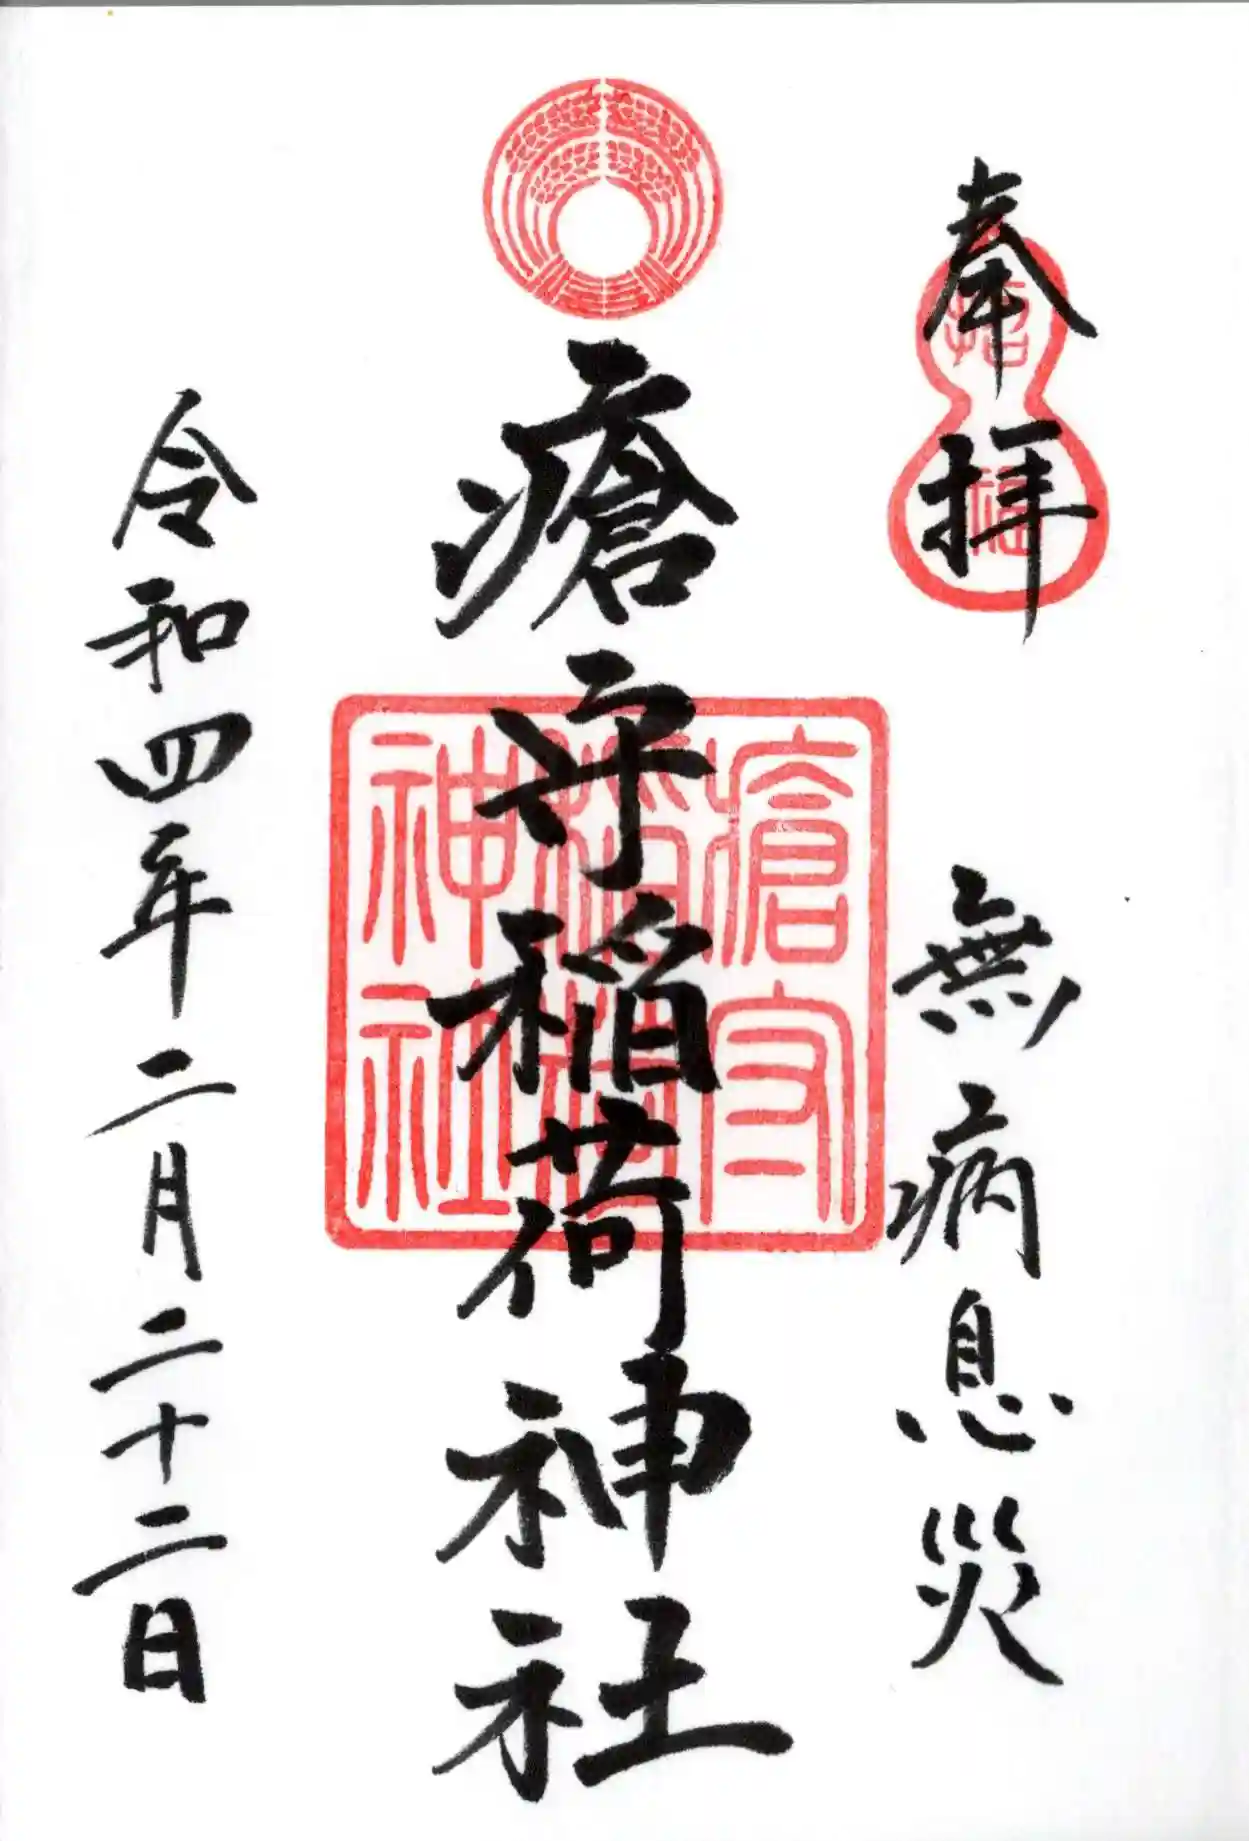 奉拝
招福
無病息災
瘡守稲荷神社
瘡守
稲荷
神社
令和四年二月二十二日